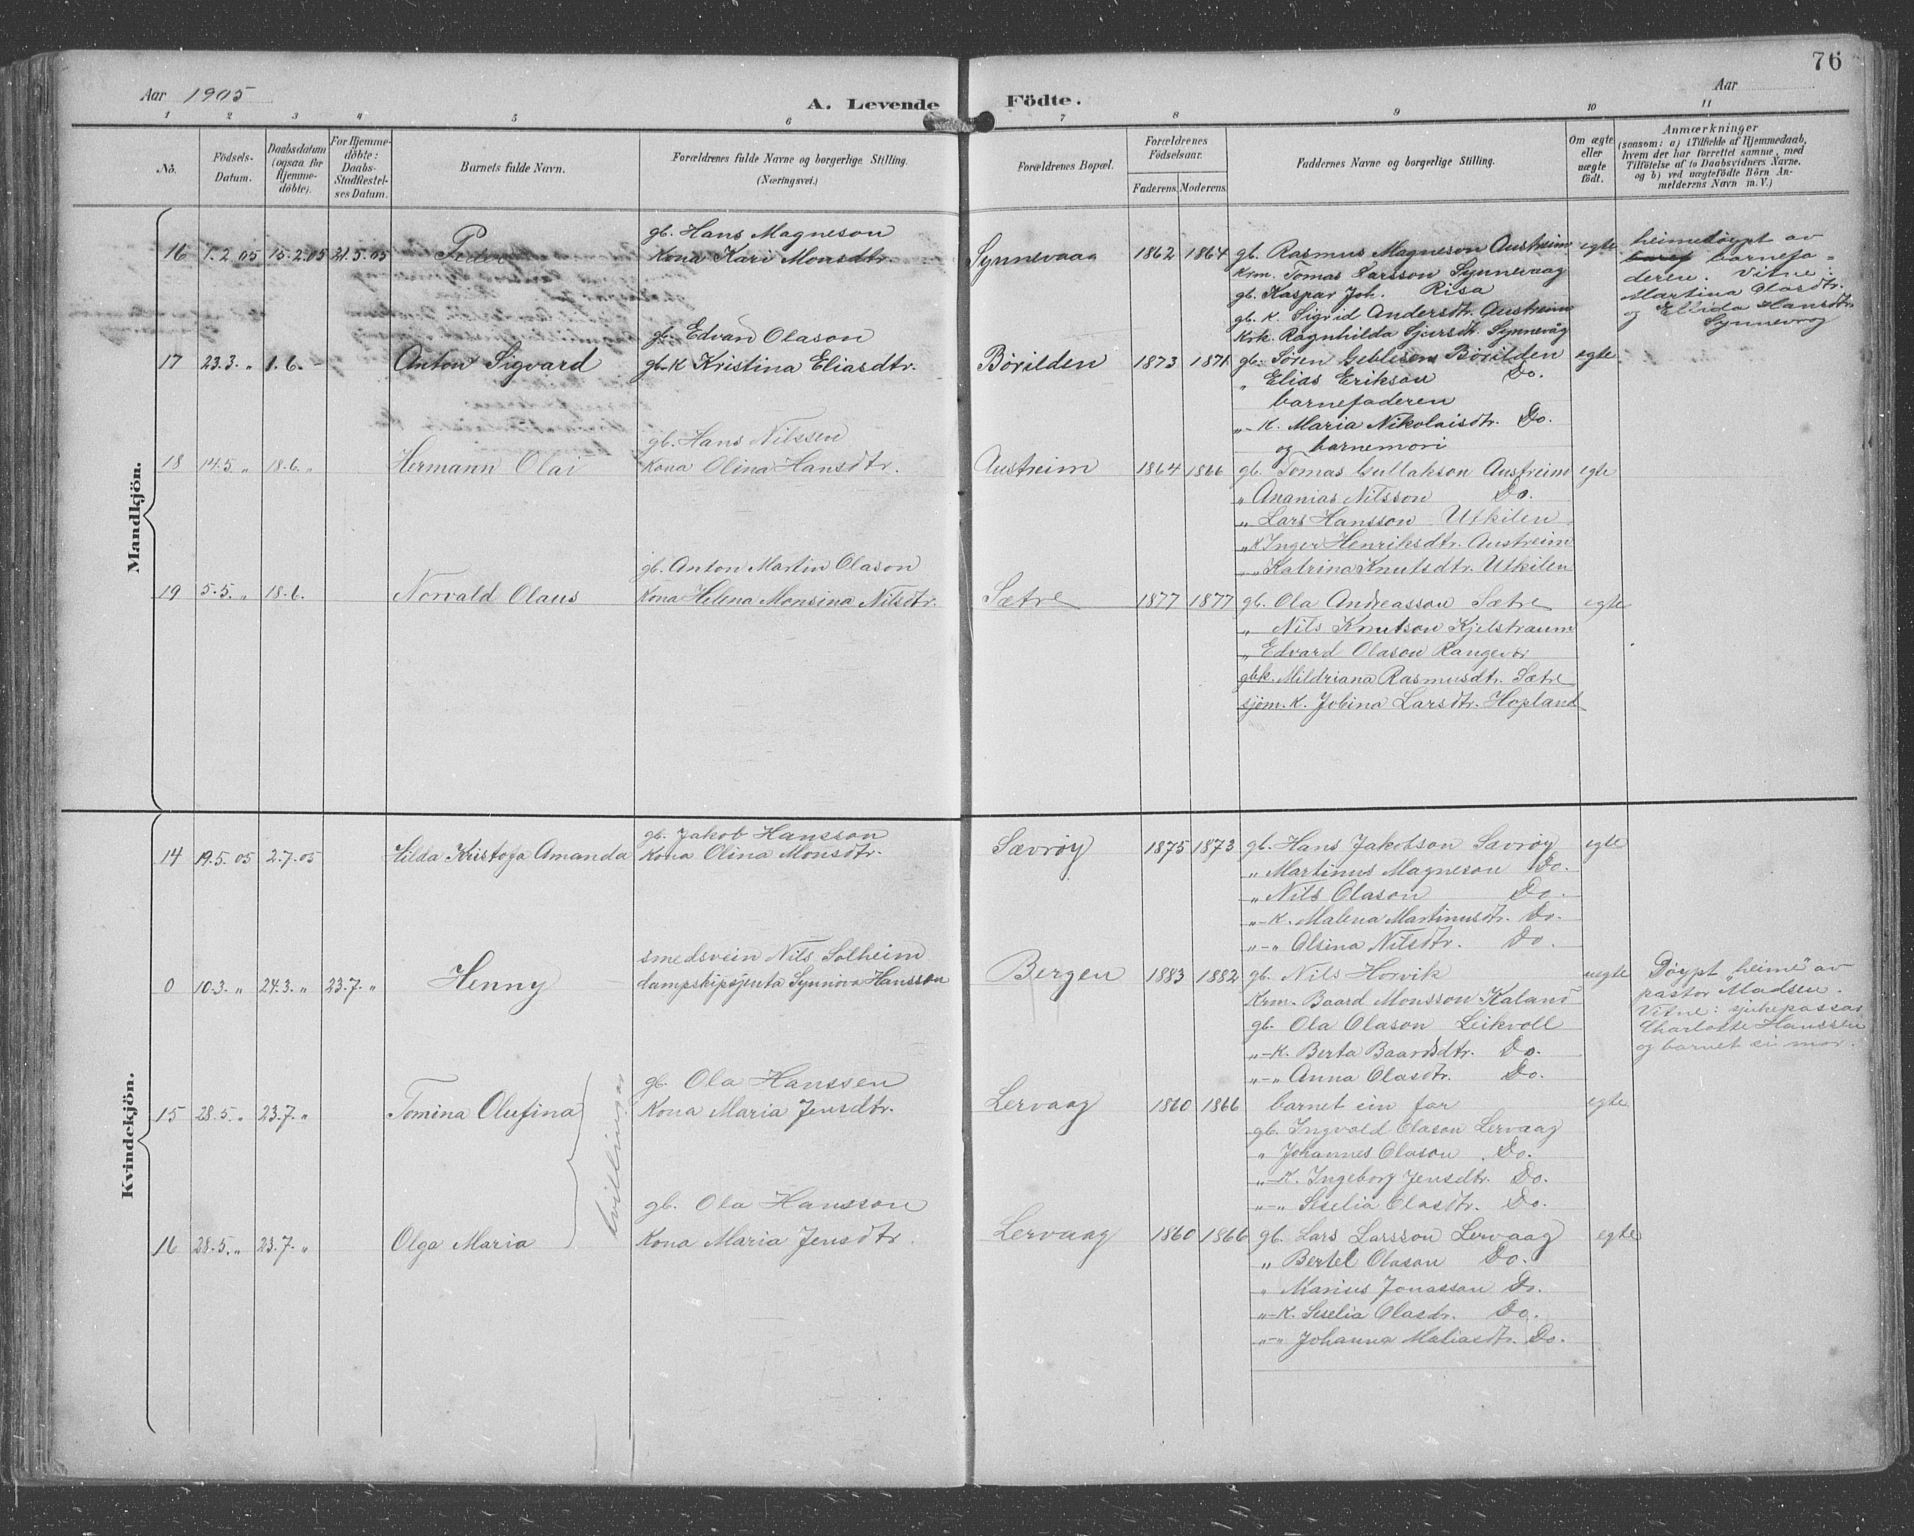 76
Aar 1905
A. Levende Födte.
Aar
1 2 3 4 5 6 7 8 9 10 11
No.
Födsels-Datum.
Daabsdatum (ogsaa for Hjemme-döbte).
For Hjemme-döbte: Daabs-Stadfæstel-ses Datum.
Barnets fulde Navn.
Forældrenes fulde Navne og borgerlige Stilling.
(Næringsvei.)
Forældrenes Bopæl.
Forældrenes Födselsaar.
Faderens. Moderens.
Faddernes Navne og borgerlige Stilling.
Om ægte eller uægte födt.
Anmærkninger
(saasom: a) i Tilfælde af Hjemmedaab,
hvem der har forrettet samme, med
Tilföielse af to Daabsvidners Navne,
og b) ved uægtefödte Börn An-
melderens Navn m. V.)
Mandkjön.
16 1.2.05 15.2.05 21.5.05 Peder
gb. Hans Magneson
Kona Kari Monsdtr.
Synnevaag 1862 1864
gb. Rasmus Magneson Austreim egte
Krm. Tomas Larsson Synnevaag
gb. Kaspar Joh. Risa
gb. K. Sigrid Andersdtr. Austreim
Krk. Ragnhilda Sjursdtr. Synnevåg
heimedøypt av
barnefa-
deren. Vitne:
Martina Olasdtr.
og Elida Hansdtr.
17 23.3. „ 1.6. – Anton Sigvard
gb. Edvard Olason
gb-K Kristina Eliasdtr.
Börilden 1873 1871
gb. Sören Börilden egte
„ Elias Erikson Do.
barnefaderen
„-K. Maria Nikolaisdtr. Do.
og barnemori
18 14.5 „ 18.6. „ Hermann Olai
gb. Hans Nilssen
Kona Olina Hansdtr.
Austreim 1864 1866
gb. Tomas Gullakson Austreim egte
„ Ananias Nilsson Do.
„ Lars Hansson Utkilen
„K Inger Henriksdtr. Austreim
„ „ Katrina Knutsdtr. Utkilen
19 5.5. „ 18.6. Norvald Olaus
gb. Anton Martin Olason
Kona Helena Monsina Nilsdtr.
Sætre 1877 1877
gb. Ola Andreasson Sætre egte
„ Nils Knutson Kjelstraum
„ Edvard Olason Rangevær
gbk. Mildriana Rasmusdtr. Sætre
sjøm. K. Jobina Larsdtr. Hopland
Kvindekjön.
14 19.5.05 2.7.05 Hilda Kristofa Amanda
gb. Jakob Hansson
Kona Olina Monsdtr.
Sævrøy 1875 1873
gb. Hans Jakobson Sævrøy egte
„ Martinus Magneson Do.
„ Nils Olason Do.
„-K. Malena Martinusdtr. Do.
„-„ Olsina Nilsdtr. Do.
0 10.3. „ 24.3. „ 23.7. „ Henny
smedsvein Nils Solheim
dampskipsjenta Synnøva Hanssen
Bergen 1883 1882
gb. Nils Horvik uegte
Krm. Baard Monsson Kaland
gb. Ola Olason Leikvoll
„-K. Berta Baardsdtr. Do.
„-„ Anna Olasdtr. Do.
Døypt „heime” av
pastor Madsen.
Vitne: sjukepassar
Charlotte Hanssen
og barnet si mor.
15 28.5. „ 23.7 „ Tomina Olufina
tvillingar
gb. Ola Hanssen
Kona Maria Jensdtr.
Lervaag 1860 1866
barnet ein far egte
gb. Ingvald Olason Lervaag
„ Johannes Olason Do.
„-K. Ingeborg Jensdtr. Do.
„-„ Seselia Olasdtr. Do.
16 28.5. „ 23.7. „ Olga Maria
gb. Ola Hansson
Kona Maria Jensdtr.
Lervaag 1860 1866
gb. Lars Larsson Lervaag egte
„ Bertel Olason Do.
„ Marius Jonasson Do.
„-K. Seselia Olasdtr. Do.
„-„ Johanna Matiasdtr. Do.